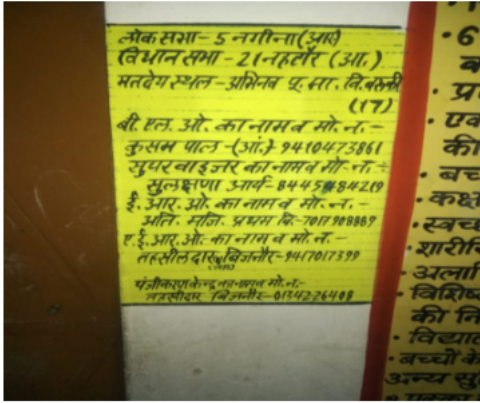 लोक सभा-5 नगीना (आ॰)
विधान सभा-21 नहटौर (आ.)
मतदेय स्थल-अभिनव पू. मा. वि.
(17)
बी. एल. ओ. का नाम व मो. न.-
कुसम पाल-(आं.)-9410473861
सुपरवाइजर का नाम व मो. न. -
सुलक्षणा आर्य-
ई. आर. ओ. का नाम व मो. न. -
अति. मजि. प्रथम बि.-7017908869
ए. ई. आर. ओ. का नाम व मो. न. -
तहसीलदार बिजनौर-9417017399
पंजीकरण केन्द्र मो. न.-
तहसीलदार बिजनौर-
• 6
• प्र
• एव
की
• बच
• कक्ष
• स्वच्छ
• शारीरि
• अलार्मि
• विशिष्ट
की नि
• विद्याल
• बच्चों के
अन्य सु